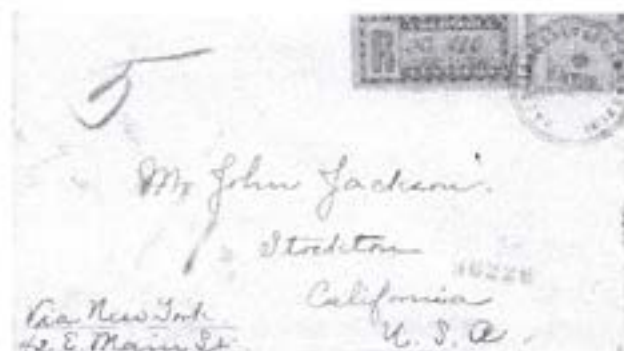 R
5
Mr John Jackson.
Stockton
46226
California
U. S. A.
Via New York
42 E. Main St.